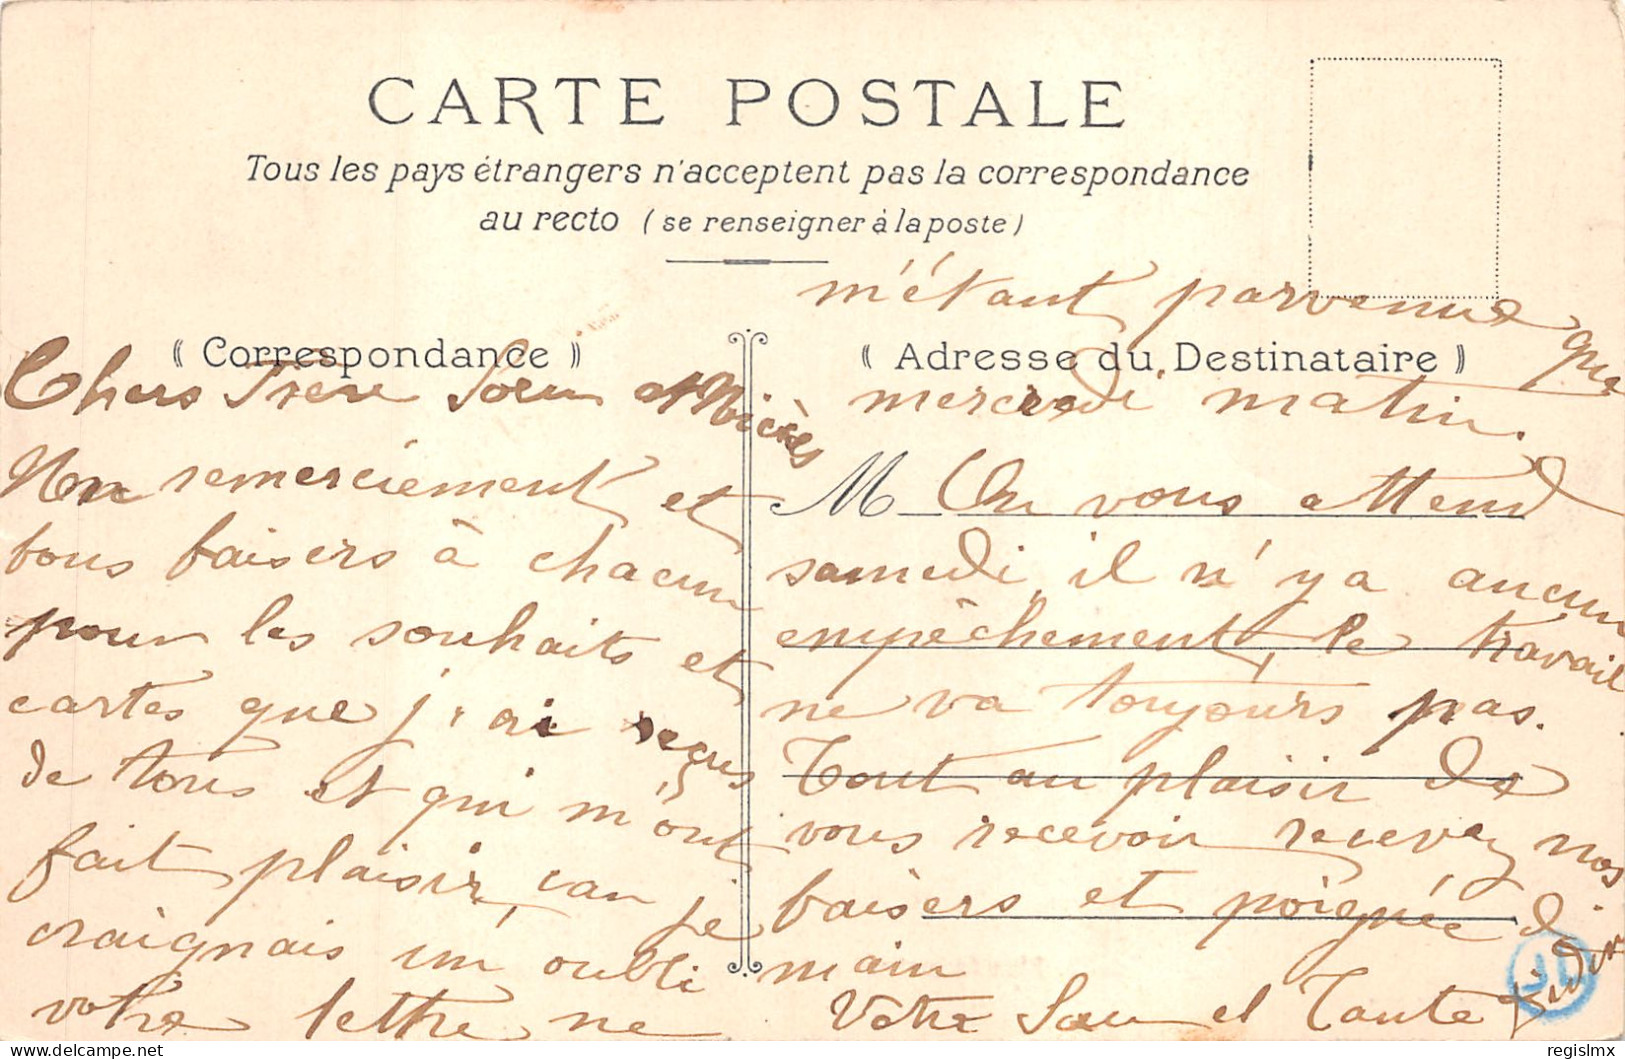 CARTE POSTALE
Tous les pays étrangers n'acceptent pas la correspondance
au recto (se renseigner à la poste)
« Correspondance »
Chers Frère Soeur et Nièces
Mon remerciement et
bons baisers à chacun
pour les souhaits et
cartes que j'ai reçus
de tous et qui m'ont
fait plaisir, car je
craignais un oubli
votre lettre ne
m'étant parvenue que
« Adresse du Destinataire »
mercredi matin.
M On vous attend
samedi, il n'y a aucun
empêchement, le travail
ne va toujours pas.
Tout au plaisir de
vous recevoir recevez nos
baisers et poignée de
main
Votre Soeur et Tante
JL
delcampe.net
regislmx